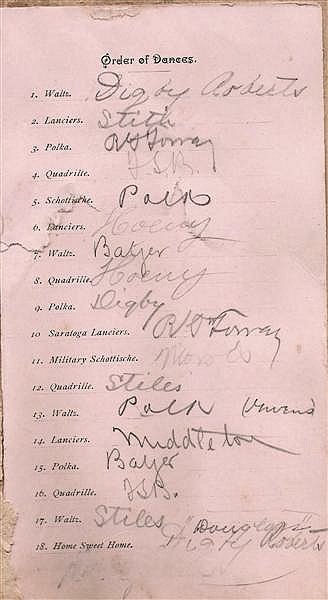 Order of Dances.
1. Waltz. Digby Roberts
2. Lanciers. Stith
3. Polka.
4. Quadrille. J.S.B.
5. Schottische. Polk
6. Lanciers.
7. Waltz. Batzer
8. Quadrille.
9. Polka. Digby
10 Saratoga Lanciers.
11. Military Schottische.
12. Quadrille. Stiles
13. Waltz. Polk
14. Lanciers. Middleton
15. Polka. Batzer
16. Quadrille. J.S.B.
17. Waltz. Stiles "Douglass"
18. Home Sweet Home. Digby Roberts